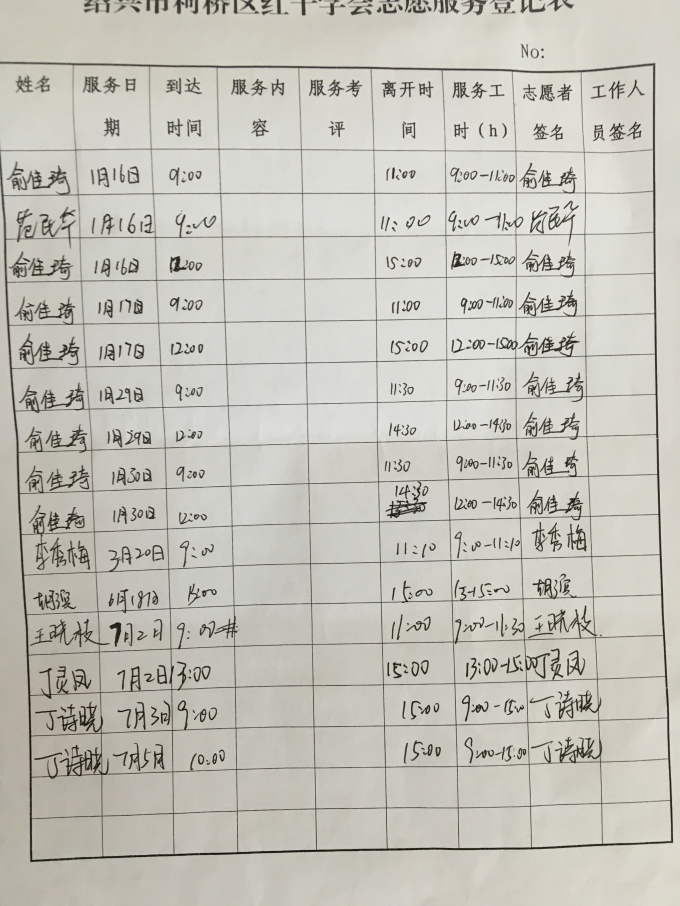 绍兴市柯桥区红十字会志愿服务登记表
No:
姓名 服务日期 到达时间 服务内容 服务考评 离开时间 服务工时（h） 志愿者签名 工作人员签名
俞佳琦 1月16日 9:00 11:00 9:00-11:00 俞佳琦
范民华 1月16日 9:00 11:00 9:00-11:00 范民华
俞佳琦 1月16日 12:00 15:00 12:00-15:00 俞佳琦
俞佳琦 1月17日 9:00 11:00 9:00-11:00 俞佳琦
俞佳琦 1月17日 12:00 15:00 12:00-15:00 俞佳琦
俞佳琦 1月29日 9:00 11:30 9:00-11:30 俞佳琦
俞佳琦 1月29日 12:00 14:30 12:00-14:30 俞佳琦
俞佳琦 1月30日 9:00 11:30 9:00-11:30 俞佳琦
俞佳琦 1月30日 12:00 14:30 12:00-14:30 俞佳琦
李秀梅 3月20日 9:00 11:10 9:00-11:10 李秀梅
胡滨 6月18日 15:00 13-15:00 胡滨
王晓枝 7月2日 9:00 11:00 9:00-11:30 王晓枝
丁灵凤 7月2日 13:00 15:00 13:00-15:00 丁灵凤
丁诗晓 7月3日 9:00 15:00 9:00-15:00 丁诗晓
丁诗晓 7月5日 10:00 15:00 9:00-15:00 丁诗晓